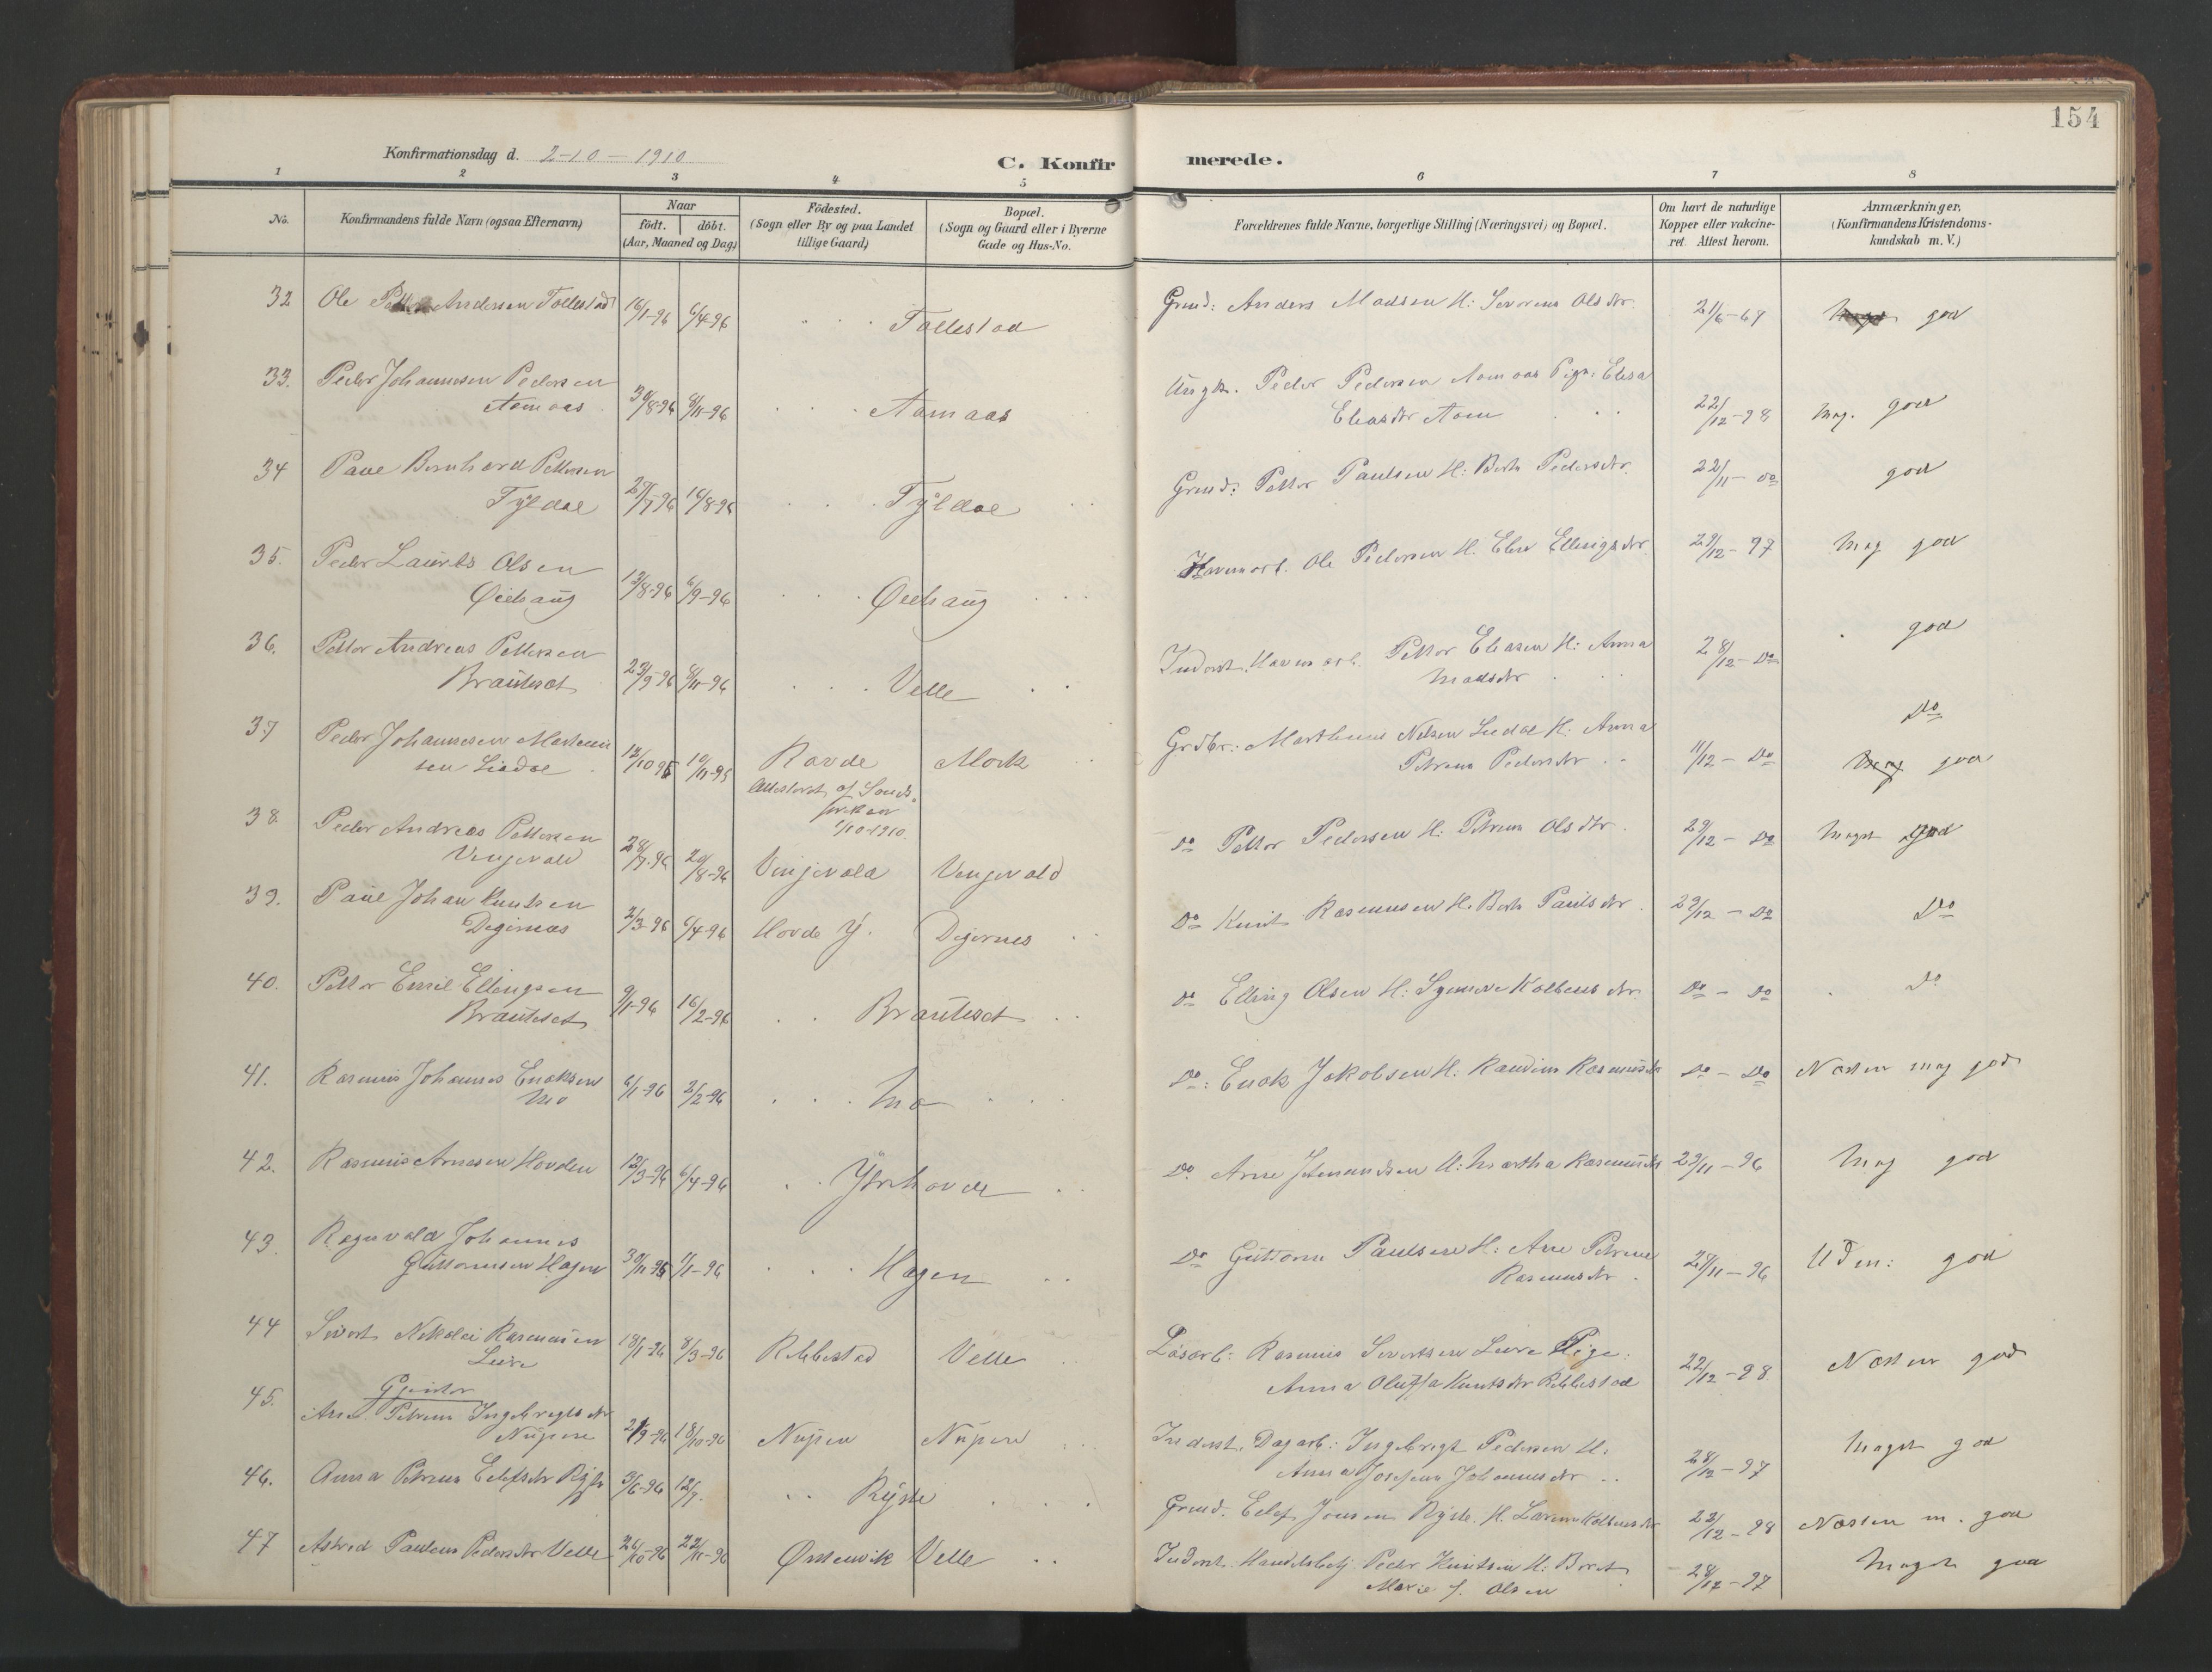 154
Konfirmationsdag d. 2-10-1910
C. Konfirmerede.
1 2 3 4 5 6 7 8
No.
Konfirmandens fulde Navn (ogsaa Efternavn)
Naar
födt. döbt.
(Aar, Maaned og Dag)
Födested.
(Sogn eller By og paa Landet
tillige Gaard)
Bopæl.
(Sogn og Gaard eller i Byerne
Gade og Hus-No.
Forældrenes fulde Navne, borgerlige Stilling (Næringsvei) og Bopæl.
Om havt de naturlige
Kopper eller vakcine-
ret Attest herom.
Anmærkninger.
(Konfirmandens Kristendoms-
kundskab m. V.)
32 Ole Andersen Follestad 16/1-96 6/4-96 Follestad Grmd: Anders Madsen H: Olsdtr. god
33. Peder Johannesen Pedersen
Aamaas 30/8-96 8/11-96 Aamaas Ungk. Peder Pedersen Aamaas Pige: Elisa
Eliasdtr Aam 22/12-98 Mag. god
34 Paul Bernhard Pettersen
Tyldal 16/8-96 Tyldal Grmd: Petter Paulsen H: Berte Pedersdtr. 22/11 - do god
35. Peder Laurits Olsen
Øiehaug 13/8-96 6/9-96 Øiehaug Havnearb. Ole Pedersen H. 29/12-97 Mag god
36. Petter Andreas Pettersen
Brauteset 23/9-96 8/11-96 Velle Inderst. Havnearb. Petter Eliasen H: Anna
Madsdtr 28/12 - Do god
37 Peder Johannesen Martinu
sen Liadal Ravde Mork Grdbr: Nilsen Liadal H: Anna
Petrina Pedersdtr 11/12 - Do Do
Mag god
Attesteret af
1/10-1910.
38. Peder Andreas Pettersen
Vinjevold Vinjevold Vinjevold Do Petter Pedersen H: Petrina Olsdtr. 29/12 - Do Meget god
39. Paul Johan Knutsen
Digernes 2/3-96 6/4-96 Hovde Y. Digernes Do Knut Rasmusen H. Berte Paulsdtr. 29/12 - Do Do
40. Petter Emil Ellingsen
Brauteset 9/1-96 16/2-96 Brauteset Do Elling Olsen H: Synneve Kolbensdtr Do - Do Do
41. Rasmus Johannes Enoksen
Mo 6/1-96 2/2-96 Mo Do: Enok Jakobsen H: Randine Rasmusdtr Do - Do Næsten mag god
42. Rasmus Arnesen Hovden 12/3-96 6/4-96 Ytrehovde Do. Arne H: Martha Rasmusdtr 29/11-96 Mag god
43. Ragnvald Johannes
Guttormsen Hagen 30/11-95 1/1-96 Hagen Do Guttorm Paulsen H: Ane Petrine
Rasmusdtr. 28/11-96 Uden: god
44 Sivert Nikolai Rasmusen
Leire 18/1-96 8/3-96 Rebbestad Velle Løsarb: Rasmus Sivertsen Leire Pige:
Anna Oluffa Knutsdtr Rebbestad 22/12-98 Næsten god
Gjenter
45. Ane Petrine Ingebregtsdtr
Nupen 18/10-96 Nupen Nupen Inderst. Dagarb: Ingebregt Pedersen H:
Anna Josefine Johannesdtr 28/12-97 Meget god
46. Anna Petrine Eilefsdtr Ryste 3/6-96 12/7. Ryste Grmd. Eilef Jonsen Ryste. H. Kolbensdtr 22/12-98 Næsten m. god
47 Astrid Pauline Pedersdtr Velle 26/10-96 22/11-96 Ørstenvik Velle Inderst. Handelsbetj. Peder Knutsen H: Beret
Marie J. Olsen 28/12-97 Meget god